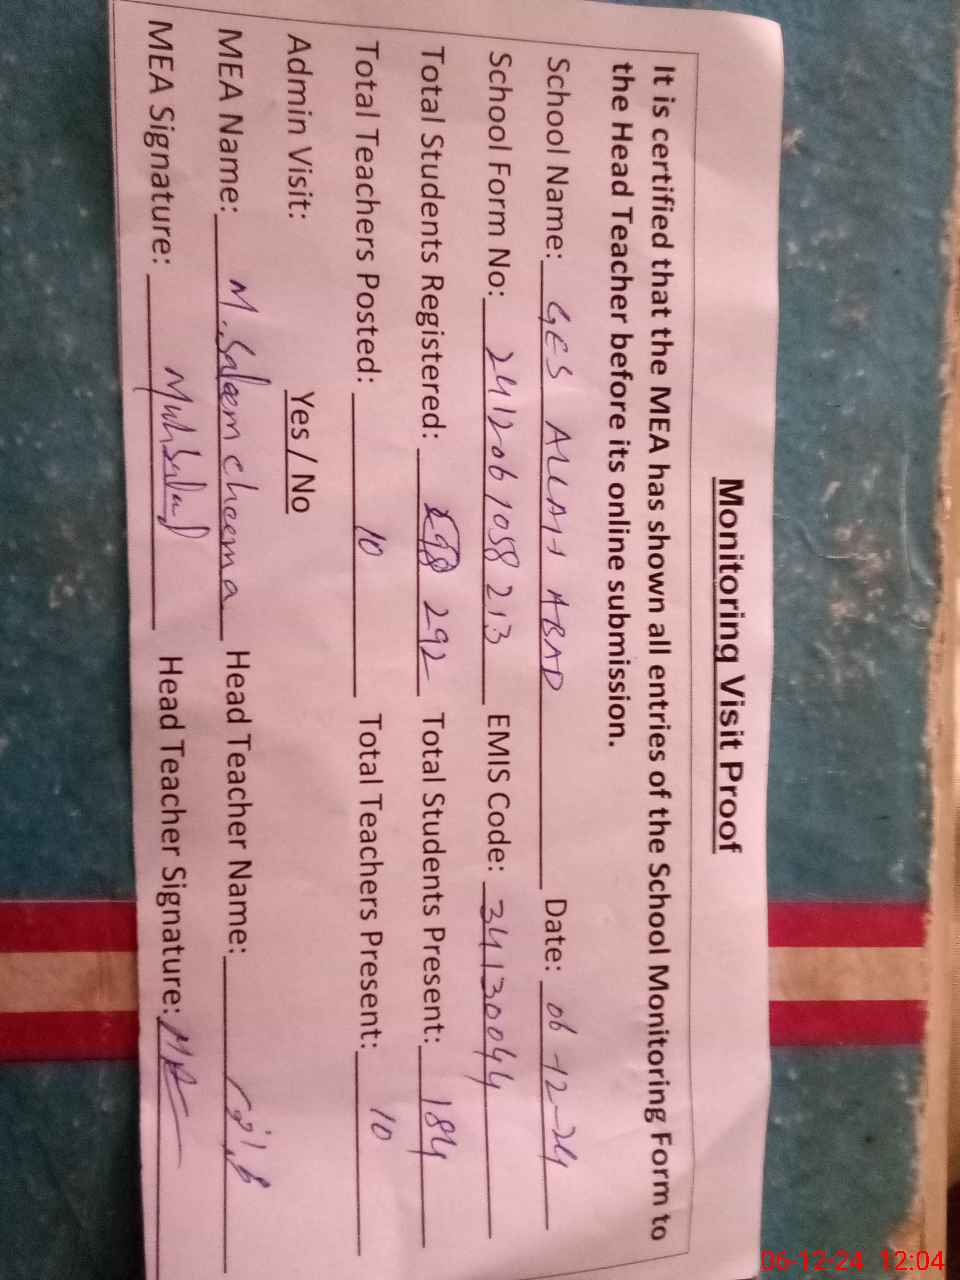 Monitoring Visit Proof
It is certified that the MEA has shown all entries of the School Monitoring Form to
the Head Teacher before its online submission.
School Name: GES ALLAH ABAD Date: 06-12-24
School Form No: 2412061058213 EMIS Code: 34130044
Total Students Registered: 292 Total Students Present: 184
Total Teachers Posted: 10 Total Teachers Present: 10
Admin Visit: Yes / No
MEA Name: M. Saleem cheema Head Teacher Name:
MEA Signature: Head Teacher Signature:
06-12-24 12:04